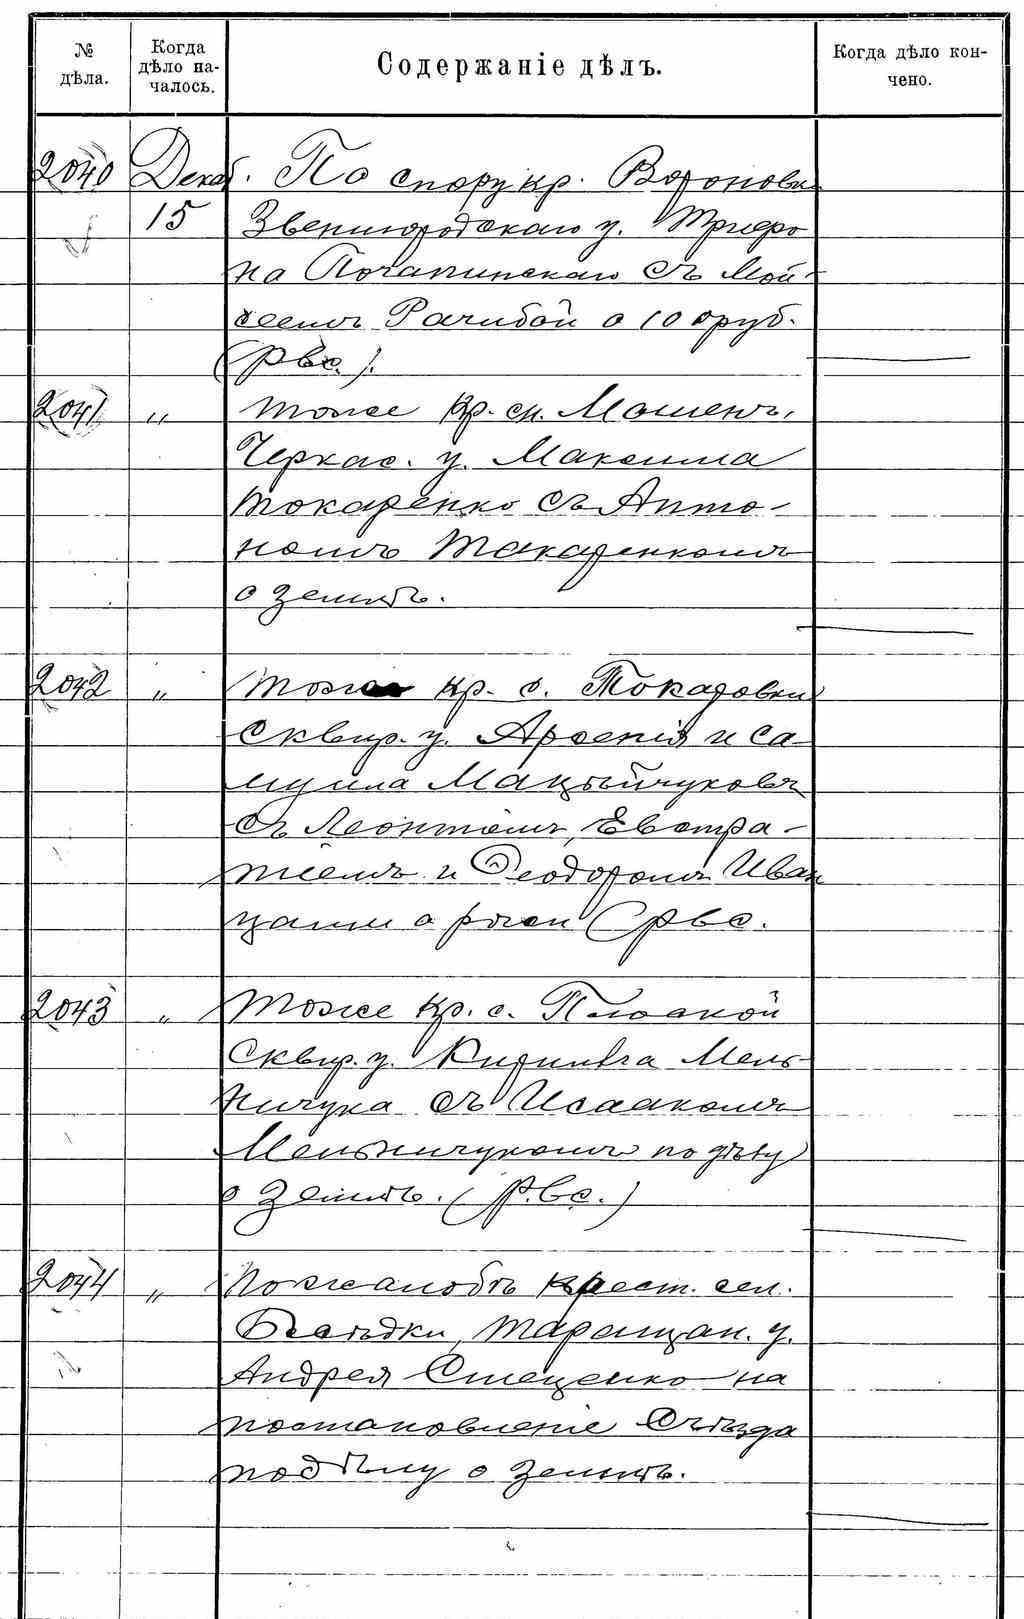 № дѣла.
Когда дѣло на-
чалось.
Содержаніе дѣлъ.
Когда дѣло кон-
чено.
2040 Декаб. По спору кр. Вороновки
15 Звенигородскаго у. Трифо
на Почапинскаго съ Мой-
сеемъ Рачибой о 100 руб.
(рвс.).
2041 " тоже кр. сц. Мошенъ,
Черкас. у. Максима
Токаренко съ Анто-
номъ Токаренкомъ
о землѣ.
2042 " тоже кр. с. Токаровки
Сквир. у. Арсенія и Са-
муила Мацѣйчуковъ
съ Леонтіемъ, Евстра-
тіемъ и Ѳеодоромъ Иван
цами о (рвс.
2043 " тоже кр. с. Плоской
Сквир. у. Кирилла Мель-
ничука съ Исаакомъ
Мельничукомъ по дѣлу
о землѣ. (р.вс.)
2044 " По жалобѣ крест. сел.
Бесѣдки, Таращан. у.
Андрея Стеценко на
постановленіе Съѣзда
по дѣлу о землѣ.